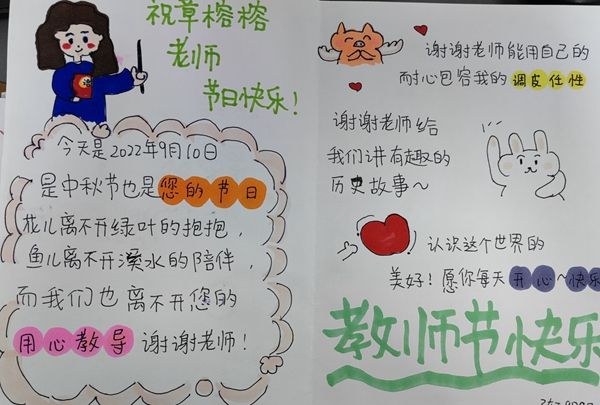 祝草榕榕
老师
节日快乐!
今天是2022年9月10日
是中秋节也是您的节日
花儿离不开绿叶的抱抱,
鱼儿离不开溪水的陪伴,
而我们也离不开您的
用心教导 谢谢老师!
谢谢老师能用自己的
耐心包容我的调皮任性
谢谢老师给
我们讲有趣的
历史故事~
认识这个世界的
美好!愿你每天开心~快乐
教师节快乐